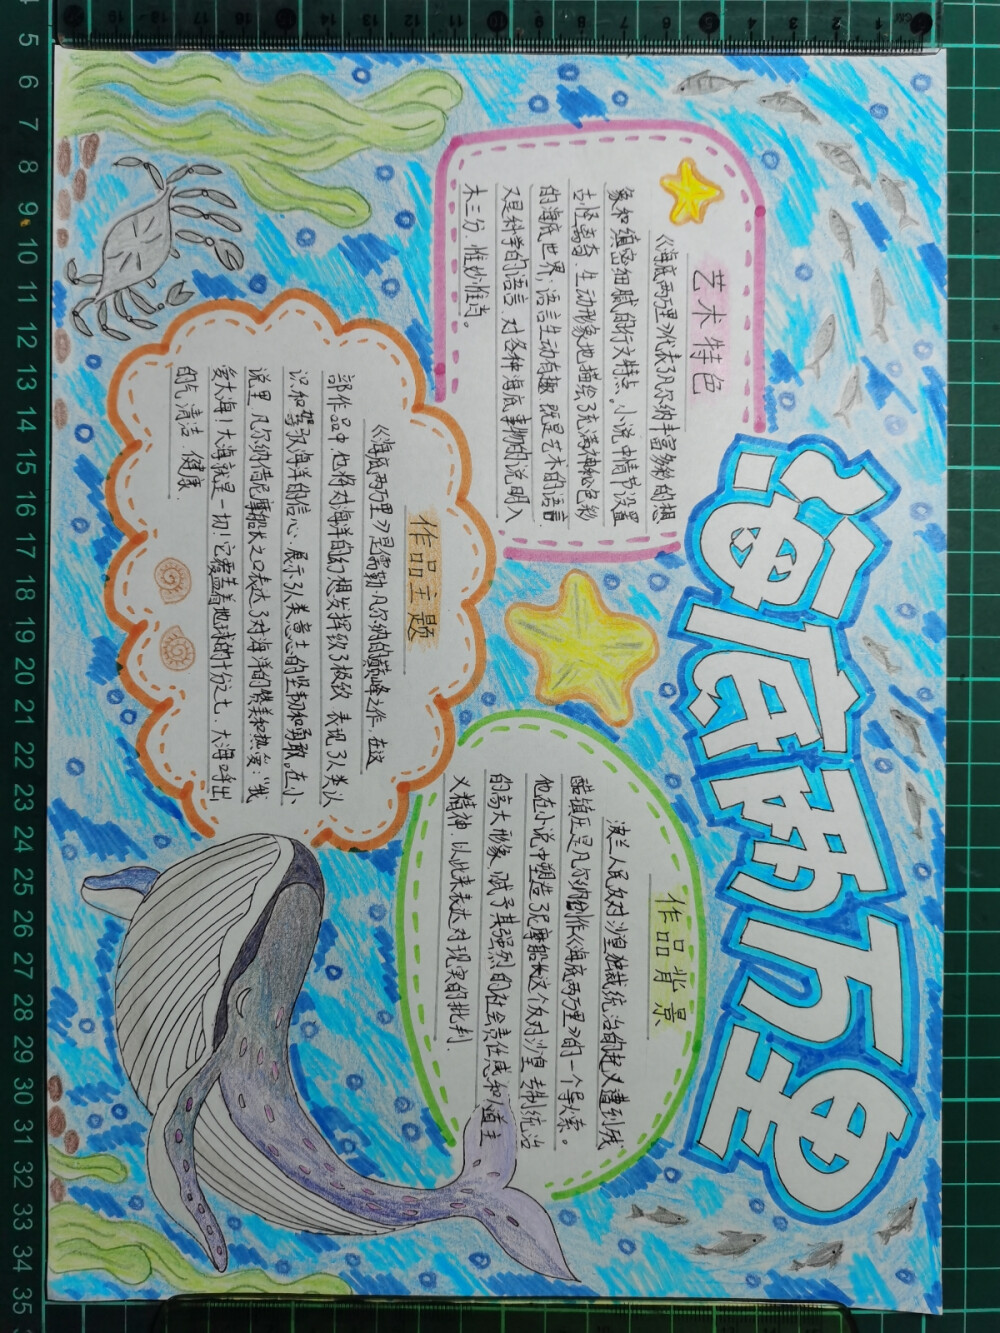 海底两万里
艺术特色
《海底两万里》代表了凡尔纳丰富多彩的想
象和缜密细腻的行文特点。小说中情节设置
古怪离奇、生动形象地描绘了充满神秘色彩
的海底世界；语言生动有趣，既是艺术的语言，
又是科学的语言，对各种海底事物的说明入
木三分，惟妙惟肖。
作品主题
《海底两万里》是儒勒·凡尔纳的巅峰之作，在这
部作品中，他将对海洋的幻想发挥到了极致，表现了人类认
识和驾驭海洋的信心，展示了人类意志的坚韧和勇敢。在小
说里，凡尔纳借尼摩船长之口表达了对海洋的赞美和热爱："我
爱大海！大海就是一切！它覆盖着地球的十分之七，大海呼出
的气清洁、健康。
作品背景
波兰人民反对沙皇独裁统治的起义遭到残
酷镇压是凡尔纳创作《海底两万里》的一个导火索。
他在小说中塑造了尼摩船长这个反对沙皇专制统治
的高大形象，赋予其强烈的社会责任感和人道主
义精神，以此来表达对现实的批判。